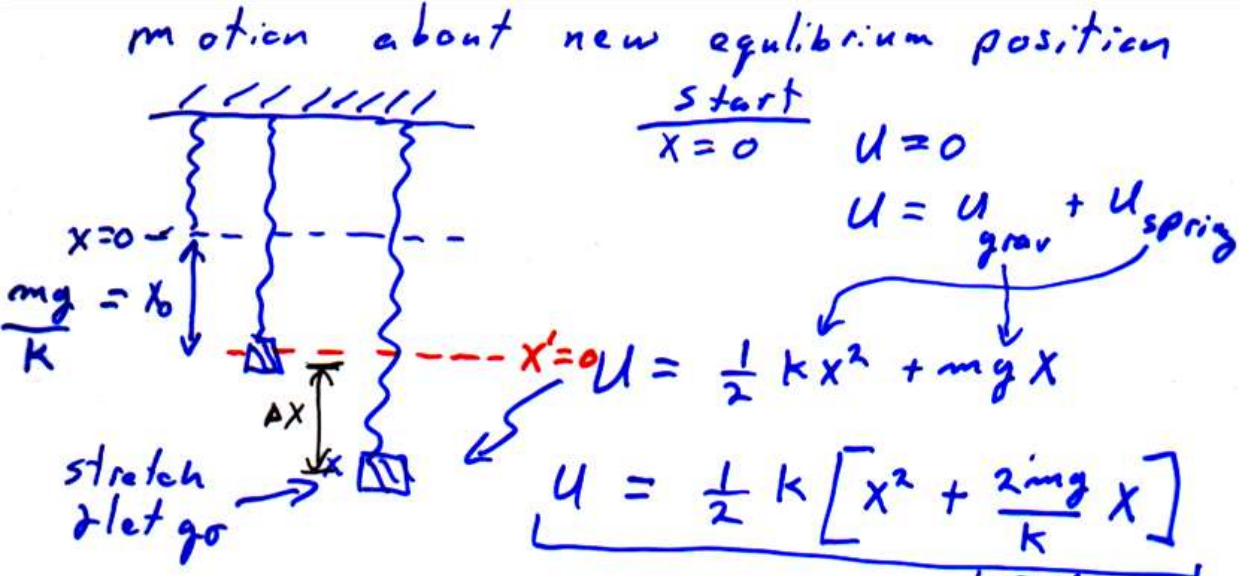 motion about new equlibrium position
start
x = 0 U = 0
U = U grav + U spring
x=0
mg/k = x₀
x'=0 U = ½ kx² + mgx
Δx
x
stretch
& let go
U = ½ k [x² + 2mg/k x]